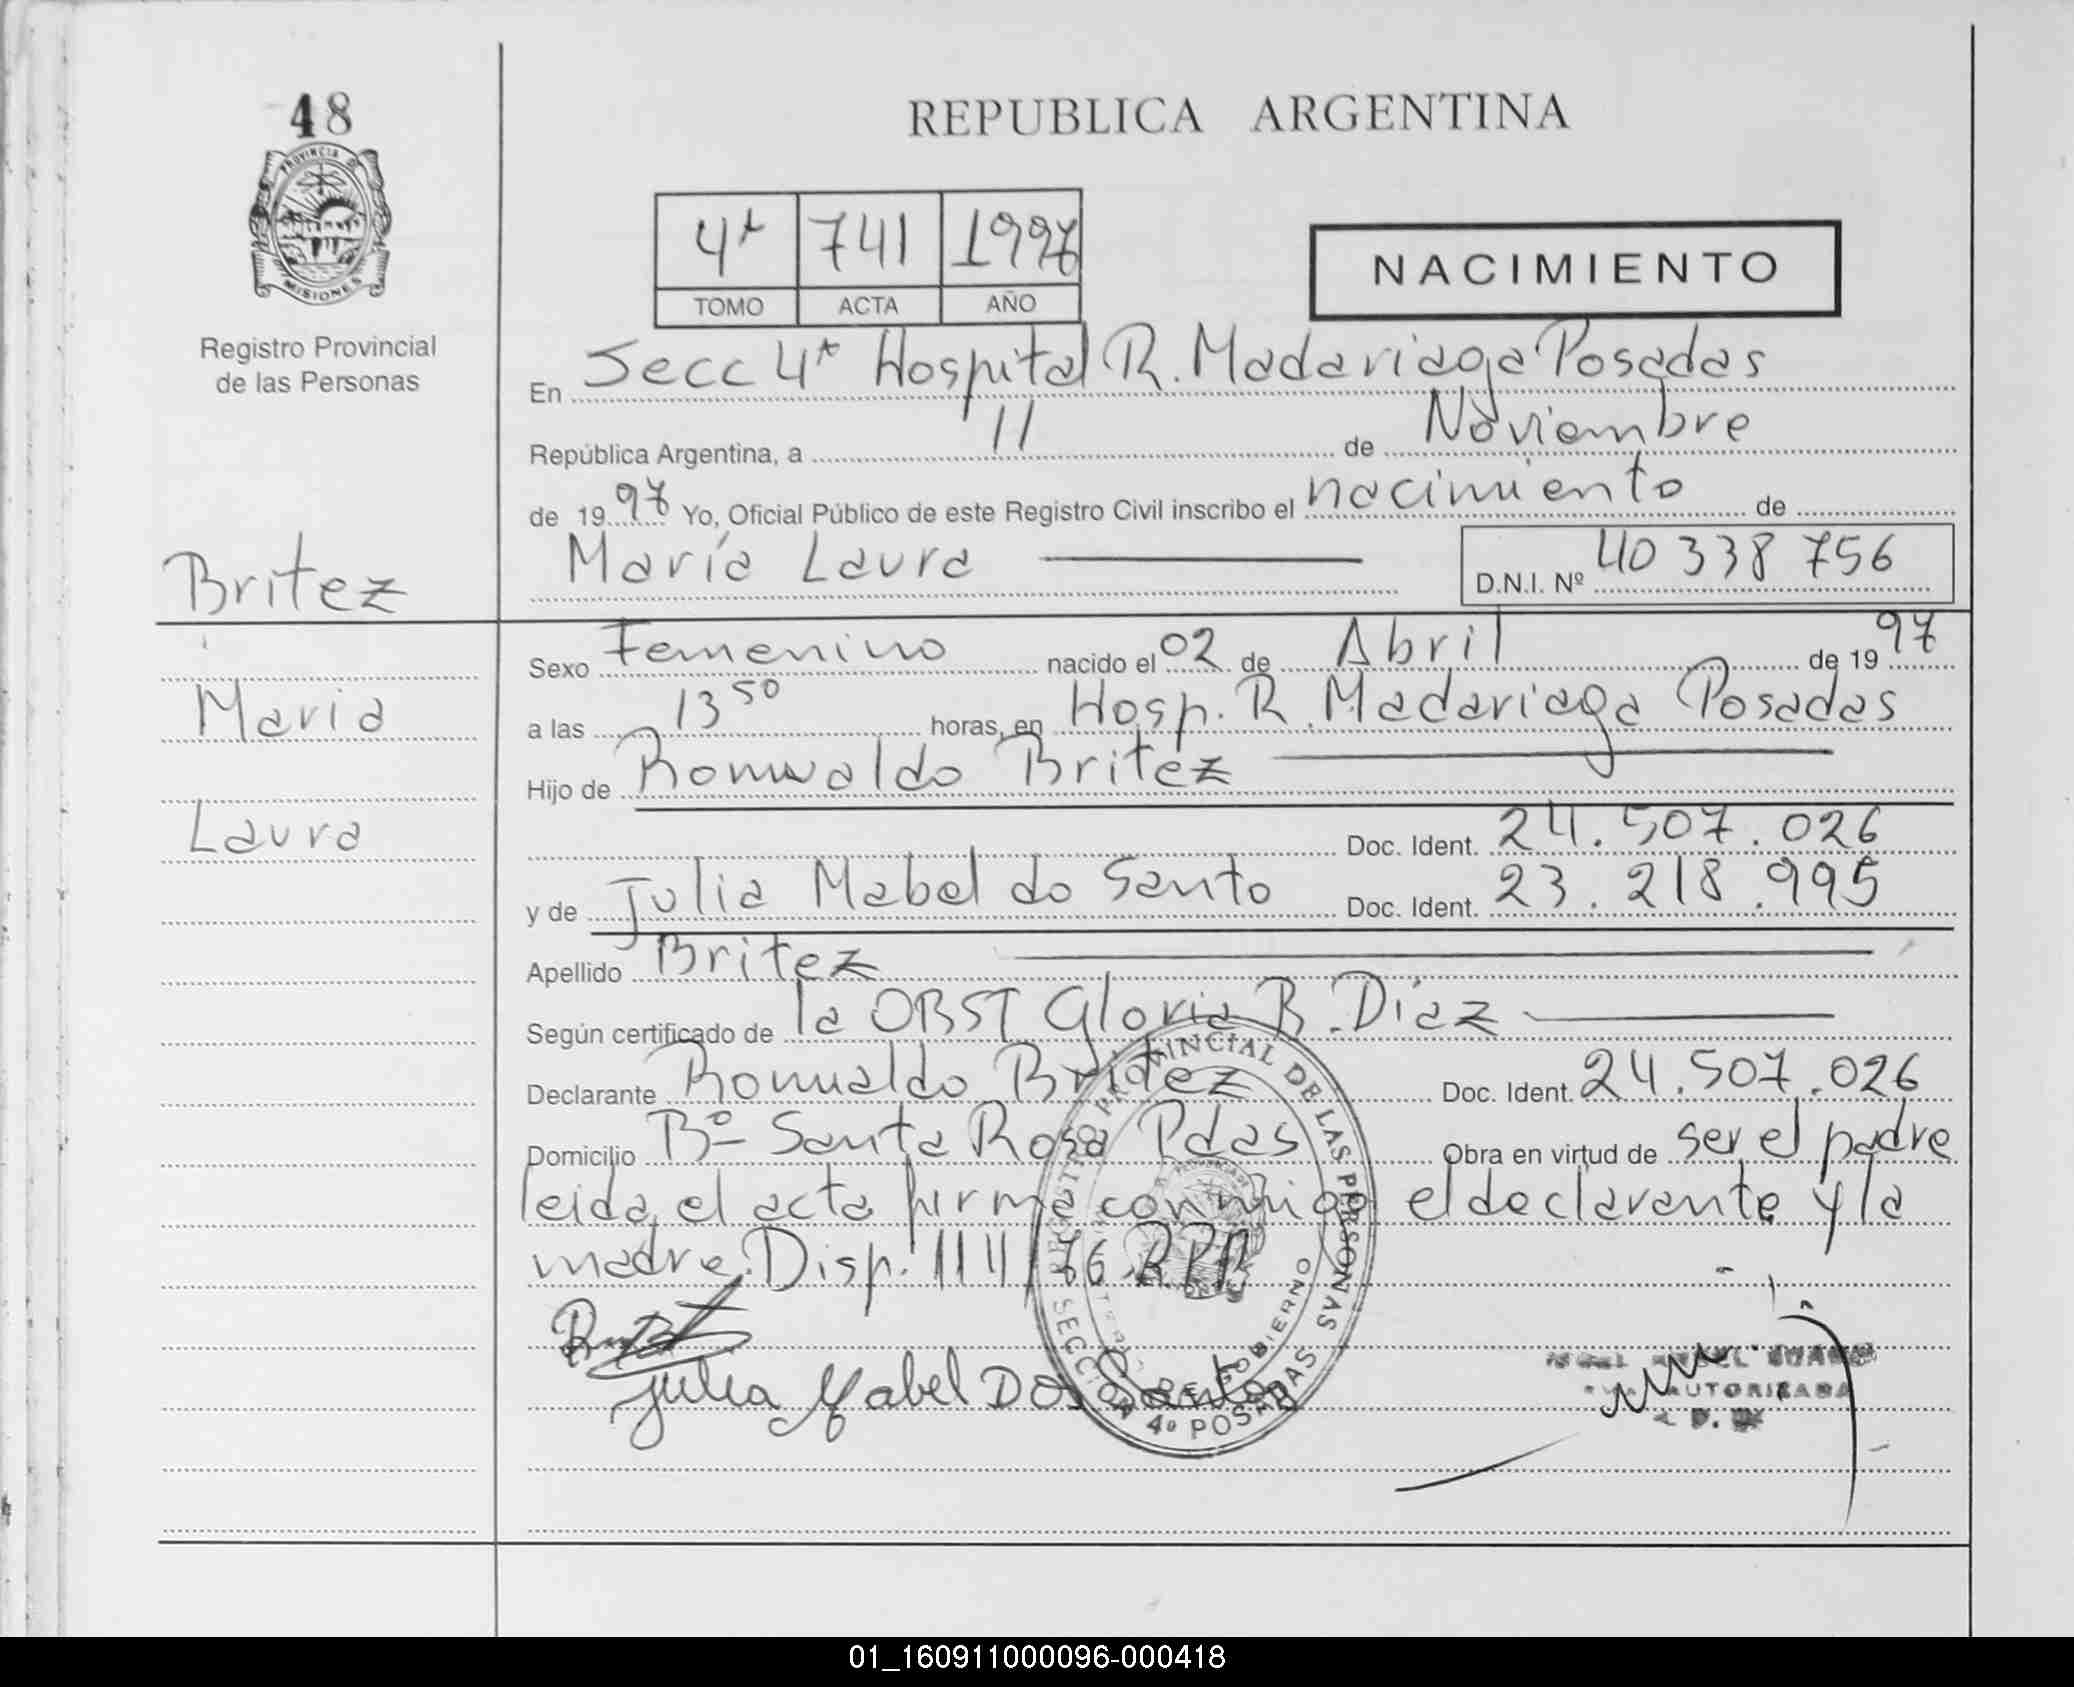 48
PROVINCIA D
MISIONES
Registro Provincial
de las Personas
REPUBLICA ARGENTINA
4ª 741 1997
TOMO ACTA AÑO
NACIMIENTO
En Secc 4ª Hospital R. Madariaga Posadas
República Argentina, a 11 de Noviembre
de 1997 Yo, Oficial Público de este Registro Civil inscribo el nacimiento de
María Laura D.N.I. Nº 40 338 756
Britez
Maria
Laura
Sexo Femenino nacido el 02 de Abril de 1997
a las 13 50 horas, en Hosp. R. Madariaga Posadas
Hijo de Romualdo Britez
Doc. Ident. 24.507.026
y de Julia Mabel do Santo Doc. Ident. 23.218.995
Apellido Britez
Según certificado de la OBST Gloria B. Diaz
Declarante Romualdo Britez Doc. Ident. 24.507.026
Domicilio Bº Santa Rosa Pdas Obra en virtud de ser el padre
leida el acta firma conmigo el declarante y la
madre. Disp. 114/76 RPP
Julia Mabel Dos Santos
REGISTRO PROVINCIAL DE LAS PERSONAS
DE GOBIERNO
SECCION 4ª POSADAS
AUTORIZADA
01_160911000096-000418